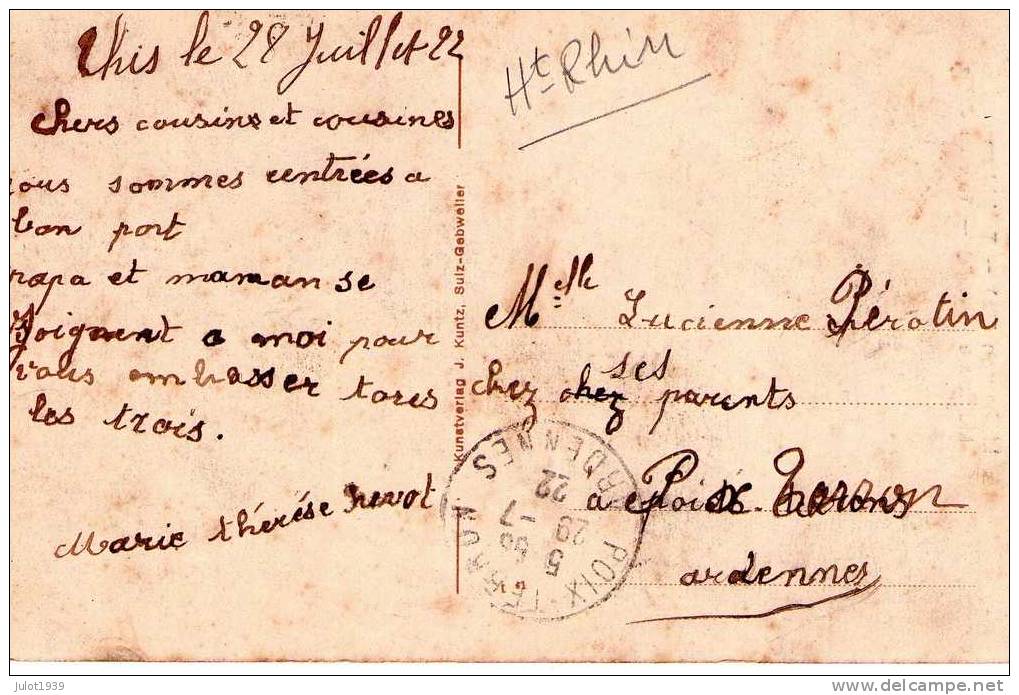 this le 28 Juillet 22
chers cousins et cousines
nous sommes rentrées a
bon port
papa et maman se
Joignent a moi pour
vous embrasser tores
les trois.
Marie thérèse
Ht Rhin
Kunstverlag J. Kuntz, Sulz-Gebweiler
Melle Lucienne Pérotin
chez ses parents
à Poix Terron
ardennes
POIX-TERRON ARDENNES
5
28 -7
22
julot1939
www.delcampe.net